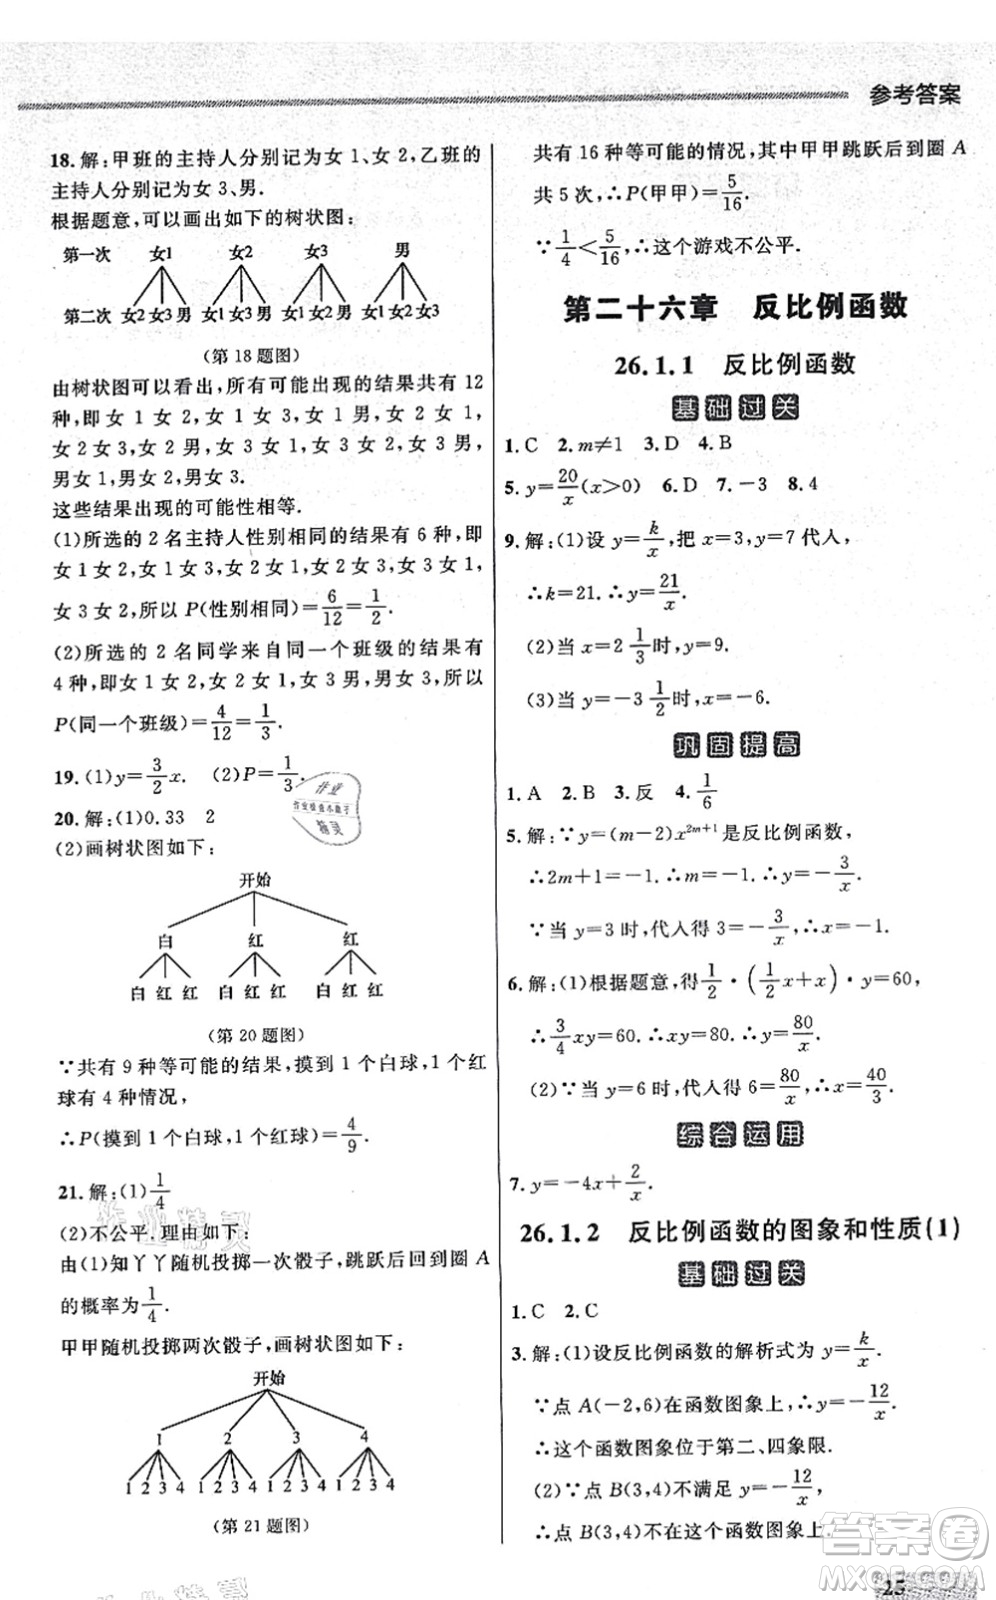 参考答案
18.解:甲班的主持人分别记为女1、女2,乙班的
主持人分别记为女3、男.
根据题意,可以画出如下的树状图:
第一次 女1 女2 女3 男
第二次 女2女3男 女1女3男 女1女2男 女1女2女3
(第18题图)
由树状图可以看出,所有可能出现的结果共有12
种,即女1女2,女1女3,女1男,女2女1,
女2女3,女2男,女3女1,女3女2,女3男,
男女1,男女2,男女3.
这些结果出现的可能性相等.
(1)所选的2名主持人性别相同的结果有6种,
即女1女2,女1女3,女2女1,女2女3,女3女1,
女3女2,所以P(性别相同)=6/12=1/2.
(2)所选的2名同学来自同一个班级的结果有
4种,即女1女2,女2女1,女3男,男女3,所以
P(同一个班级)=4/12=1/3.
19.(1)y=3/2x. (2)P=1/3.
20.解:(1)0.33 2
(2)画树状图如下:
开始
白 红 红
白 红 红 白 红 红 白 红 红
(第20题图)
∵共有9种等可能的结果,摸到1个白球、1个红
球有4种情况,
∴P(摸到1个白球、1个红球)=4/9.
21.解:(1)1/4
(2)不公平.理由如下:
由(1)知丫丫随机投掷一次骰子,跳跃后回到圈A
的概率为1/4.
甲甲随机投掷两次骰子,画树状图如下:
开始
1 2 3 4
1 2 3 4 1 2 3 4 1 2 3 4 1 2 3 4
(第21题图)
共有16种等可能的情况,其中甲甲跳跃后到圈A
共5次,∴P(甲甲)=5/16.
∵1/4<5/16,∴这个游戏不公平.
第二十六章 反比例函数
26.1.1 反比例函数
基础过关
1.C 2.m≠1 3.D 4.B
5.y=20/x(x>0) 6.D 7.-3 8.4
9.解:(1)设y=k/x,把x=3,y=7代入,
∴k=21.∴y=21/x.
(2)当x=2 1/3时,y=9.
(3)当y=-3 1/2时,x=-6.
巩固提高
1.A 2.B 3.反 4.1/6
5.解:∵y=(m-2)x²ᵐ⁺¹是反比例函数,
∴2m+1=-1.∴m=-1.∴y=-3/x.
∵当y=3时,代入得3=-3/x,∴x=-1.
6.解:(1)根据题意,得1/2·(1/2x+x)·y=60,
∴3/4xy=60.∴xy=80.∴y=80/x.
(2)∵当y=6时,代入得6=80/x,∴x=40/3.
综合运用
7.y=-4x+2/x.
26.1.2 反比例函数的图象和性质(1)
基础过关
1.C 2.C
3.解:(1)设反比例函数的解析式为y=k/x.
∵点A(-2,6)在函数图象上,∴y=-12/x.
∴这个函数图象位于第二、四象限.
(2)∵点B(3,4)不满足y=-12/x,
∴点B(3,4)不在这个函数图象上.
作业
作业检查小助手
精灵
作业精灵
作业精灵
答案卷
MXQE.COM
25